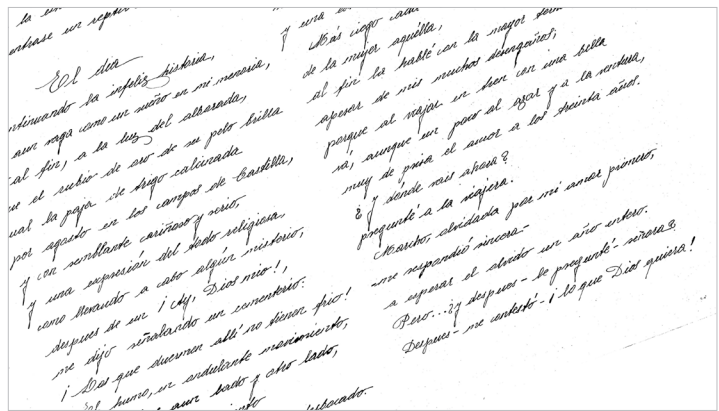 la
entrase un
El día
ntinuando la infeliz historia,
aun vaga como un sueño en mi memoria,
al fin, a la luz del alborada,
ue el rubio de oro de su pelo brilla
ual la paja de trigo calcinada
por agosto en los campos de Castilla,
y con semblante cariñoso y serio,
y una expresión del todo religiosa,
como llevando a cabo algún misterio,
despues de un ¡Ay, Dios mio!,
me dijo señalando un cementerio:
¡Los que duermen allí no tienen frio!
El humo, en ondulante movimiento,
aun lado y otro lado,
desbocado.
y una
Más ciego
de la mujer aquélla,
al fin la hablé con la mayor
apesar de mis muchos desengaños,
porque al viajar en tren con una bella
vá, aunque un poco al azar y a la ventura,
muy de prisa el amor a los treinta años.
¿Y dónde vais ahora?
pregunté a la viajera.
Marcho, olvidada por mi amor primero,
-me respondió sincera-
a esperar el olvido un año entero.
Pero...¿y despues- le pregunté- señora?
Despues- me contestó- ¡lo que Dios quiera!